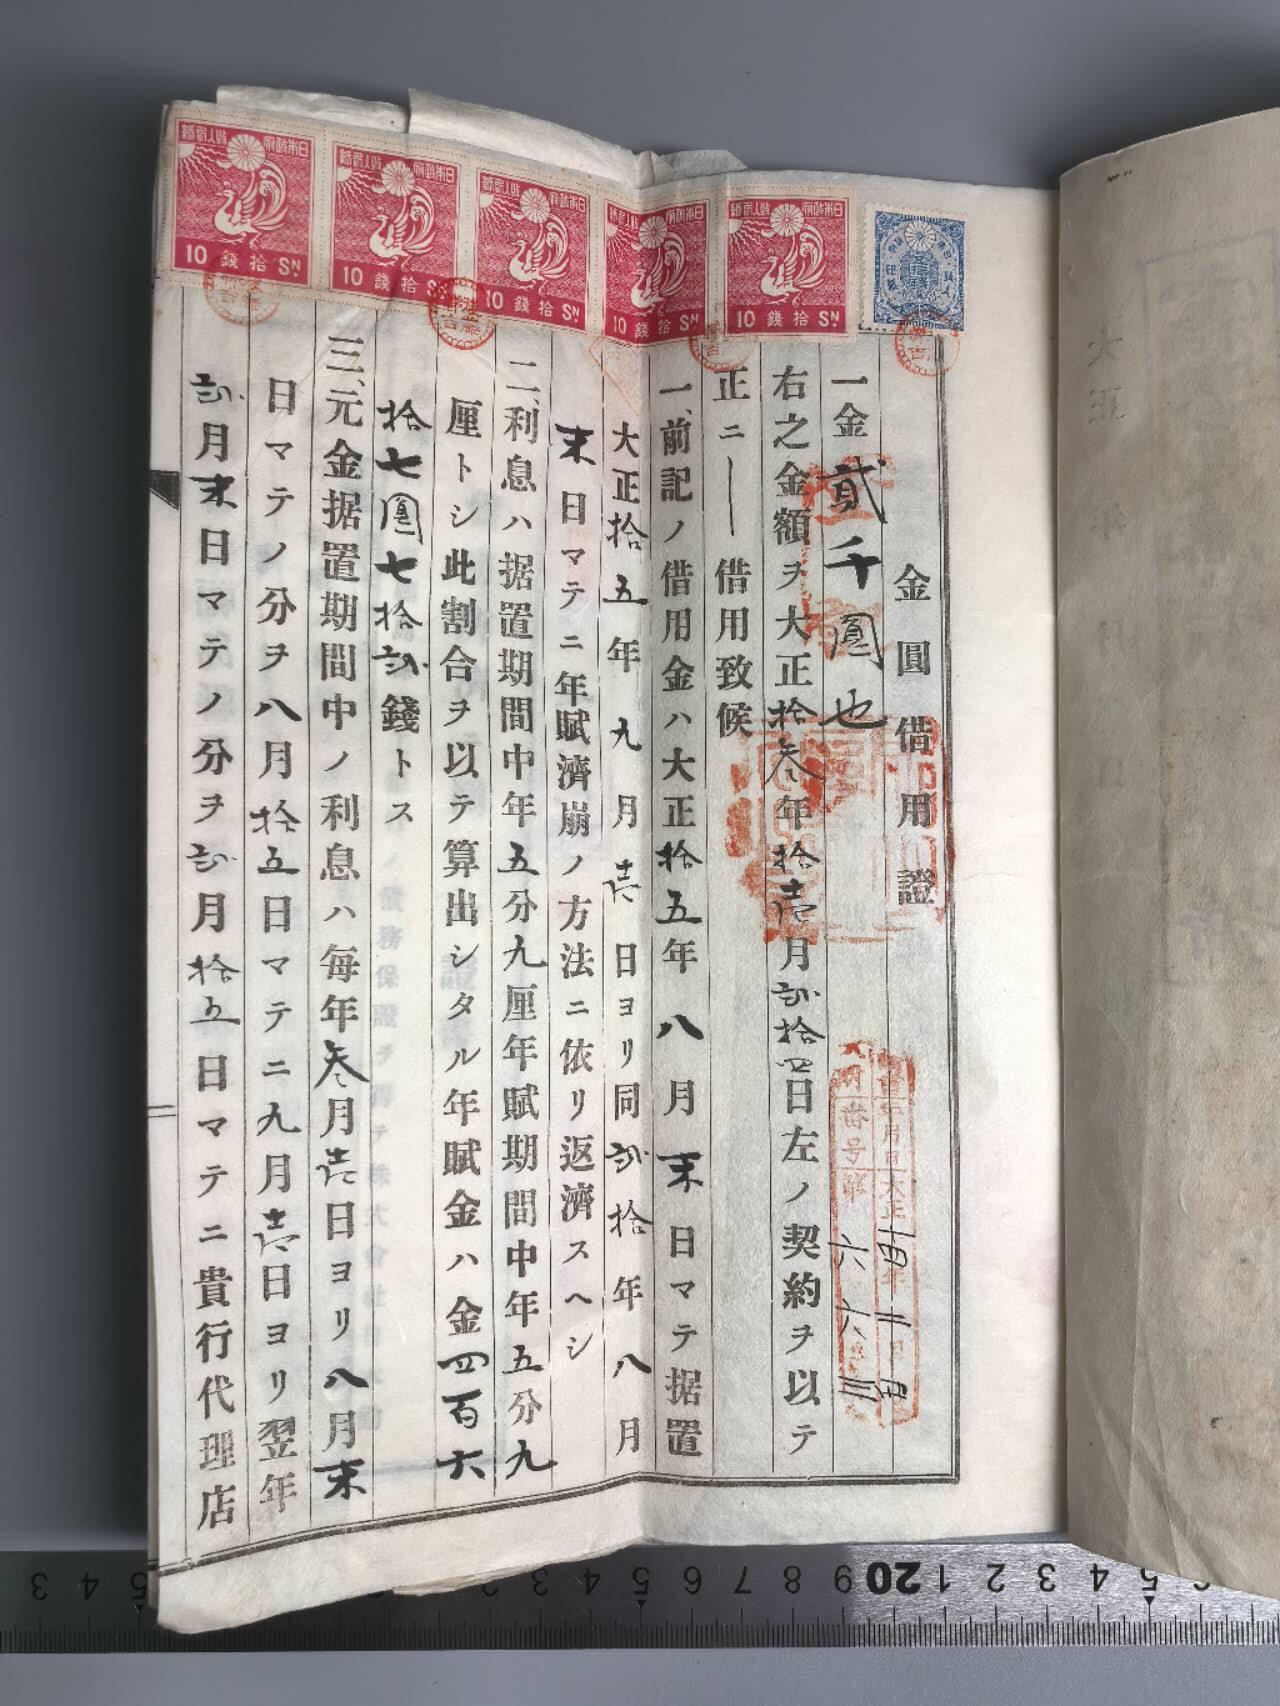 日本政府 収入印紙
10 錢拾 Sɴ
日本政府 収入印紙
10 錢拾 Sɴ
日本政府 収入印紙
10 錢拾 Sɴ
日本政府 収入印紙
10 錢拾 Sɴ
日本政府 収入印紙
10 錢拾 Sɴ
金圓借用證
一金貳千圓也
右之金額ヲ大正拾叁年拾壱月弐拾四日左ノ契約ヲ以テ
正ニ借用致候
一、前記ノ借用金ハ大正拾五年八月末日マテ据置
大正拾五年九月壱日ヨリ同弐拾年八月
末日マテニ年賦濟崩ノ方法ニ依リ返濟スヘシ
二、利息ハ据置期間中年五分九厘年賦期間中年五分九
厘トシ此割合ヲ以テ算出シタル年賦金ハ金四百六
拾七圓七拾弐錢トス
三、元金据置期間中ノ利息ハ毎年叁月壱日ヨリ八月末
日マテノ分ヲ八月拾五日マテニ九月壱日ヨリ翌年
弐月末日マテノ分ヲ弐月拾五日マテニ貴行代理店
年月日 大正 年 月 日
番号
大正 年 月 日
3 4 5 2 3 4 5 6 7 8 9 20 1 2 3 4 5 6